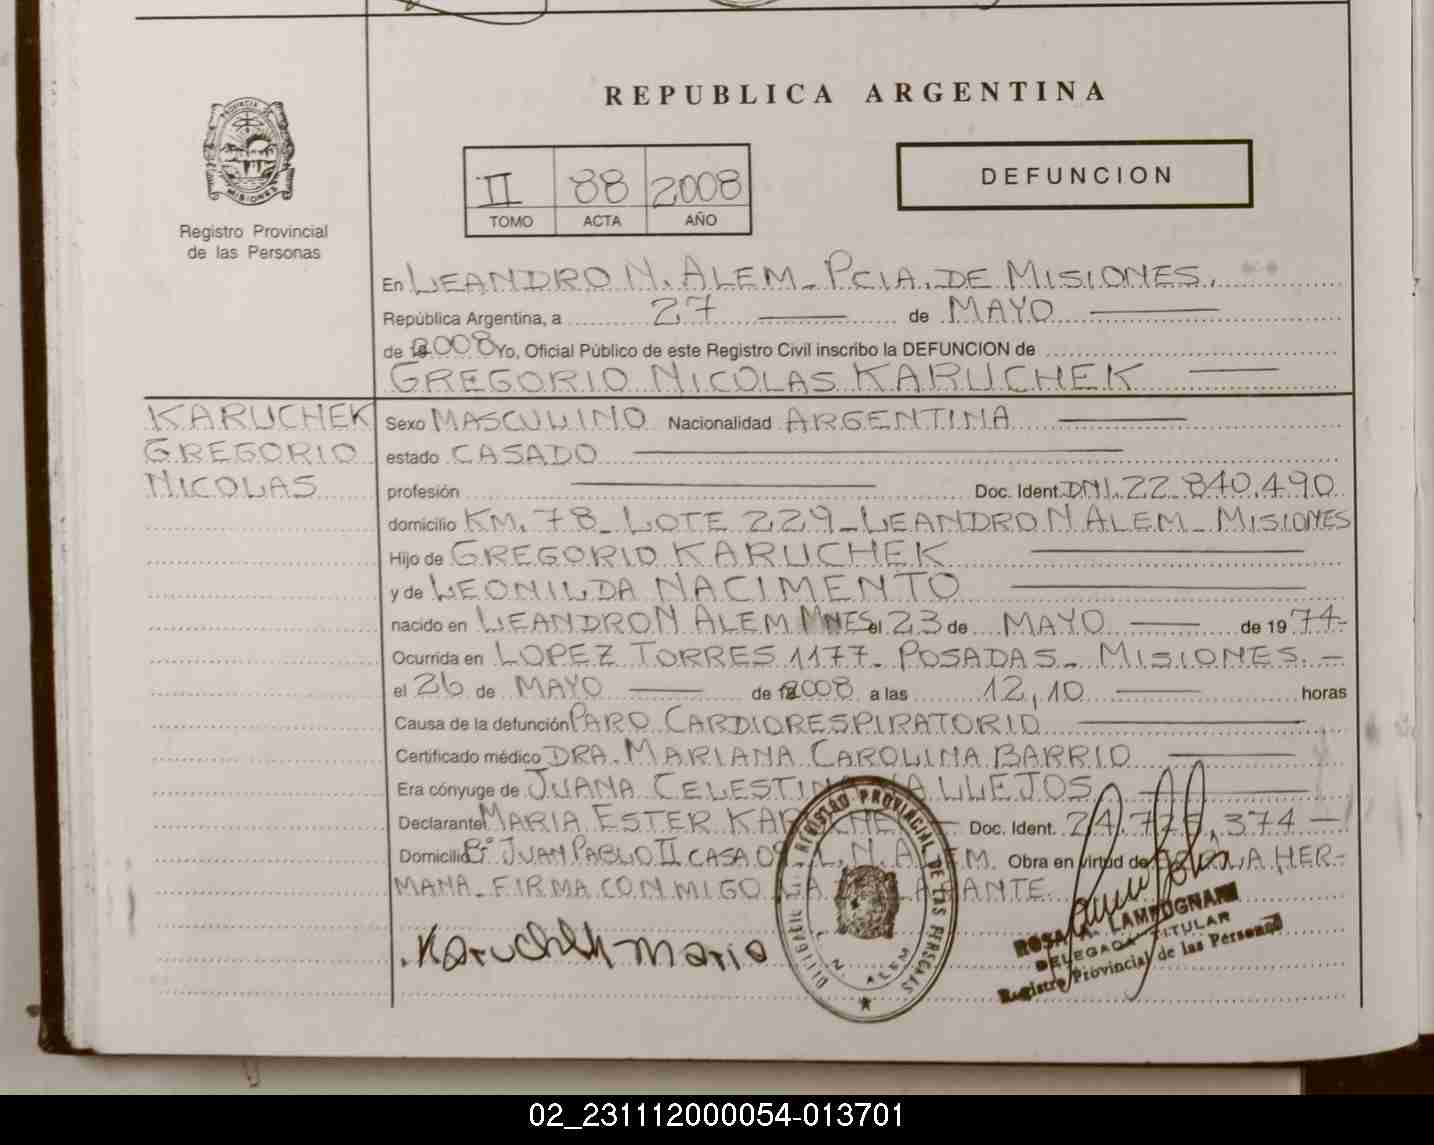 REPUBLICA ARGENTINA
PROVINCIA DE MISIONES
Registro Provincial
de las Personas
II 88 2008
TOMO ACTA AÑO
DEFUNCION
En LEANDRO N. ALEM - PCIA. DE MISIONES.
República Argentina, a 27 de MAYO
de 2008 Yo, Oficial Público de este Registro Civil inscribo la DEFUNCION de
GREGORIO NICOLAS KARUCHEK
KARUCHEK
GREGORIO
NICOLAS
Sexo MASCULINO Nacionalidad ARGENTINA
estado CASADO
profesión Doc. Ident. DNI. 22.840.490
domicilio KM. 78 - LOTE 229 - LEANDRO N ALEM - MISIONES
Hijo de GREGORIO KARUCHEK
y de LEONILDA NACIMENTO
nacido en LEANDRO N ALEM MNES el 23 de MAYO de 1974-
Ocurrida en LOPEZ TORRES 1177 - POSADAS - MISIONES. -
el 26 de MAYO de 2008 a las 12,10 horas
Causa de la defunción PARO CARDIORESPIRATORIO
Certificado médico DRA. MARIANA CAROLINA BARRIO
Era cónyuge de JUANA CELESTINA VALLEJOS
Declarante MARIA ESTER KARUCHEK Doc. Ident. 24.725.374 -
Domicilio Bº JUAN PABLO II CASA L. N. ALEM. Obra en virtud de LA HER-
MANA - FIRMA CONMIGO
Karuchek maria
REGISTRO PROVINCIAL DE LAS PERSONAS
N. ALEM
ROSA A. LAMPUGNANI
DELEGADA TITULAR
Registro Provincial de las Personas
02_231112000054-013701